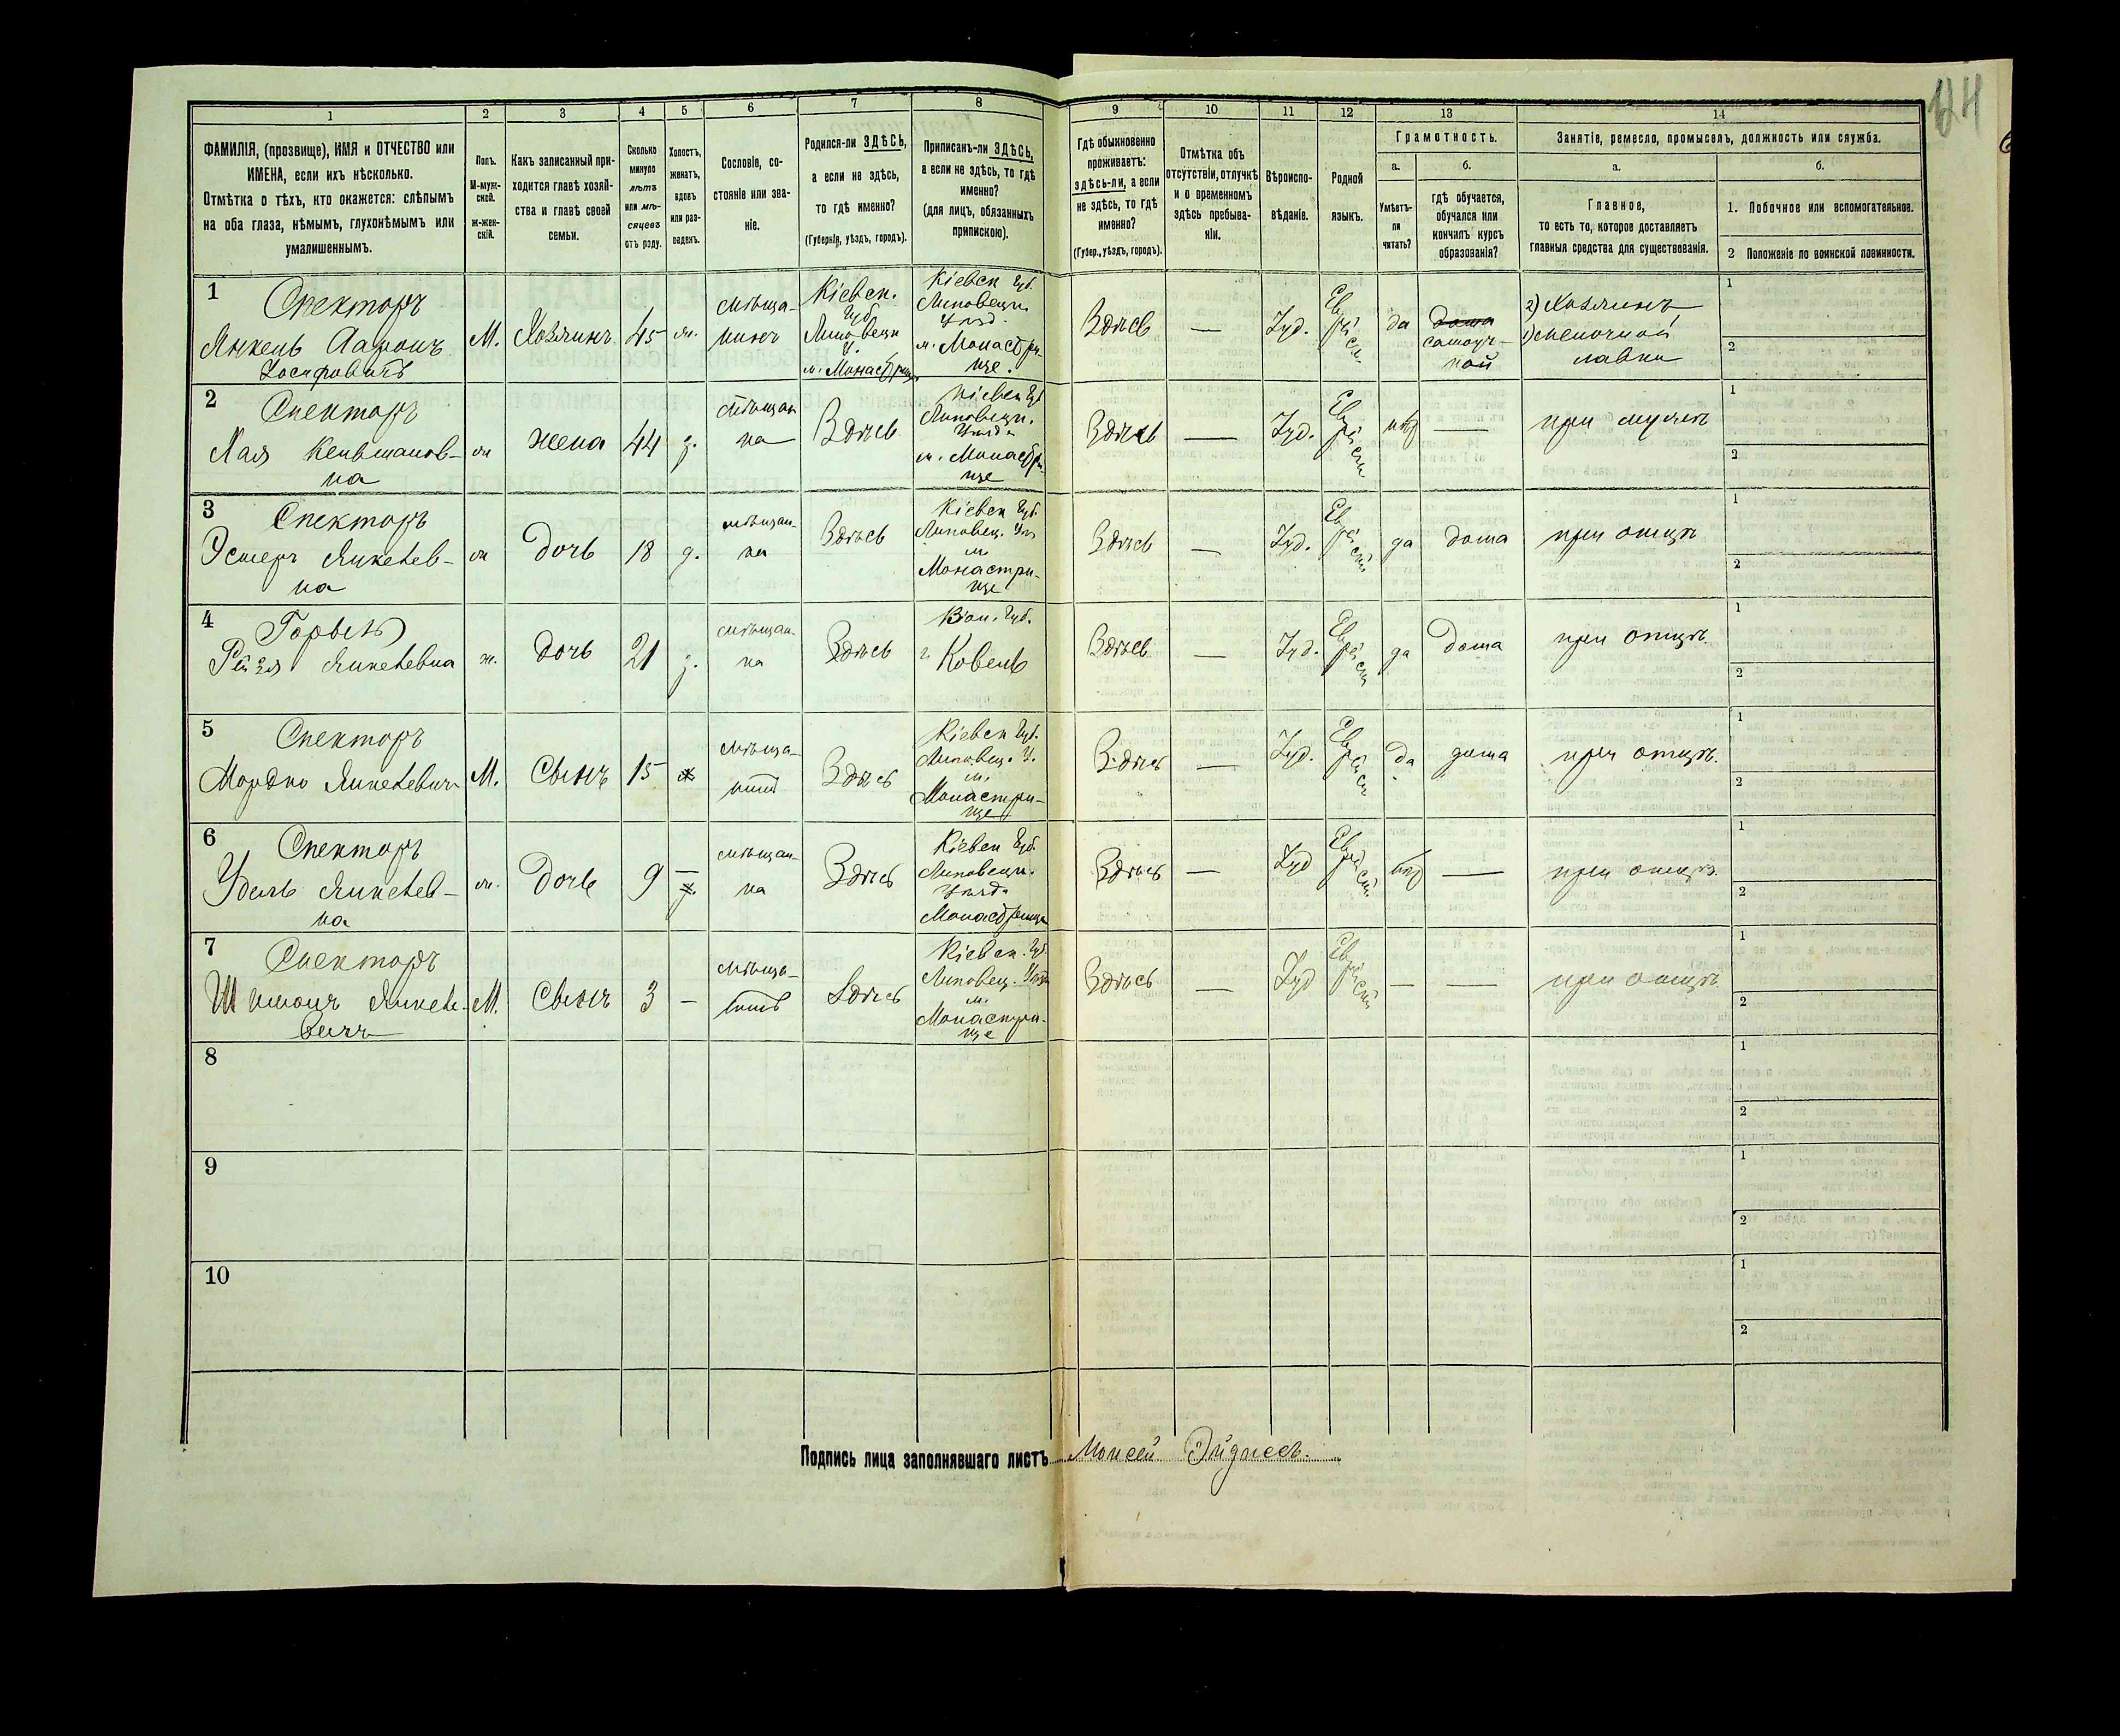 124
1 2 3 4 5 6 7 8 9 10 11 12 13 14
ФАМИЛІЯ, (прозвище), ИМЯ и ОТЧЕСТВО или
ИМЕНА, если ихъ нѣсколько.
Отмѣтка о тѣхъ, кто окажется: слѣпымъ
на оба глаза, нѣмымъ, глухонѣмымъ или
умалишеннымъ.
Полъ.
М-муж-
ской.
ж-жен-
скій.
Какъ записанный при-
ходится главѣ хозяй-
ства и главѣ своей
семьи.
Сколько
минуло
лѣтъ
или мѣ-
сяцевъ
отъ роду.
Холостъ,
женатъ,
вдовъ
или раз-
веденъ.
Сословіе, со-
стояніе или зва-
ніе.
Родился-ли ЗДѢСЬ,
а если не здѣсь,
то гдѣ именно?
(Губернія, уѣздъ, городъ).
Приписанъ-ли ЗДѢСЬ,
а если не здѣсь, то гдѣ
именно?
(для лицъ, обязанныхъ
припискою).
Гдѣ обыкновенно
проживаетъ:
здѣсь-ли, а если
не здѣсь, то гдѣ
именно?
(Губер., уѣздъ, городъ).
Отмѣтка объ
отсутствіи, отлучкѣ
и о временномъ
здѣсь пребыва-
ніи.
Вѣроиспо-
вѣданіе.
Родной
языкъ.
Грамотность.
а.
Умѣетъ-
ли
читать?
б.
гдѣ обучается,
обучался или
кончилъ курсъ
образованія?
Занятіе, ремесло, промыселъ, должность или служба.
а.
Главное,
то есть то, которое доставляетъ
главныя средства для существованія.
б.
1. Побочное или вспомогательное.
2 Положеніе по воинской повинности.
1
Спекторъ
Янкель Ааронъ
Іосифовичъ
М.
Хозяинъ
45
ж.
мѣща-
нинъ
Кіевск.
Губ.
Липовецк
у.
м. Монастрище
Кіевск Губ.
Липовецк.
Уѣзд.
м. Монастри-
ще.
Здѣсь
—
Іуд.
Еврейск.
да
дома
самоуч-
кой
2) Хозяинъ
1) мелочной
лавки
1
2
2
Спекторъ
Хая Кельманов-
на
ж
жена
44
з.
мѣщан
ка
Здѣсь
Кіевск Губ
Липовецк.
Уѣзда
м. Монастри-
ще
Здѣсь
—
Іуд.
Еврейск
нѣтъ
—
при мужѣ
1
2
3
Спекторъ
Эстеръ Янкелев-
на
ж
дочь
18
д.
мѣщан-
ка
Здѣсь
Кіевск Губ.
Липовец. Уѣз
м.
Монастри-
ще
Здѣсь
—
Іуд.
Еврейск
да
дома
при отцѣ
1
2
4
Рейзя Янкелевна
ж.
дочь
21
з.
мѣщан-
ка
Здѣсь
Вол. Губ.
г. Ковель
Здѣсь
—
Іуд.
Еврейск
да
дома
при отцѣ.
1
2
5
Спекторъ
Мордко Янкелевичъ
М.
Сынъ
15
х
мѣща-
нинъ
Здѣсь
Кіевск Губ.
Липовец. У.
м.
Монастри-
ще
Здѣсь
—
Іуд.
Еврейск
да
дома
при отцѣ.
1
2
6
Спекторъ
Удель Янкелев-
на
ж.
Дочь
9
—
мѣщан-
ка
Здѣсь
Кіевск Губ
Липовецк.
Уѣзда
Монастрище
Здѣсь
—
Іуд
Еврейск
нѣтъ
—
при отцѣ.
1
2
7
Спекторъ
Шимонъ Янкеле-
вичъ
М.
Сынъ
3
—
мѣща-
нинъ
Здѣсь
Кіевск. Губ
Липовец. Уѣзд
м.
Монастри-
ще
Здѣсь
—
Іуд
Еврейск
—
—
при отцѣ
1
2
8
1
2
9
1
2
10
1
2
Подпись лица заполнявшаго листъ Моисей